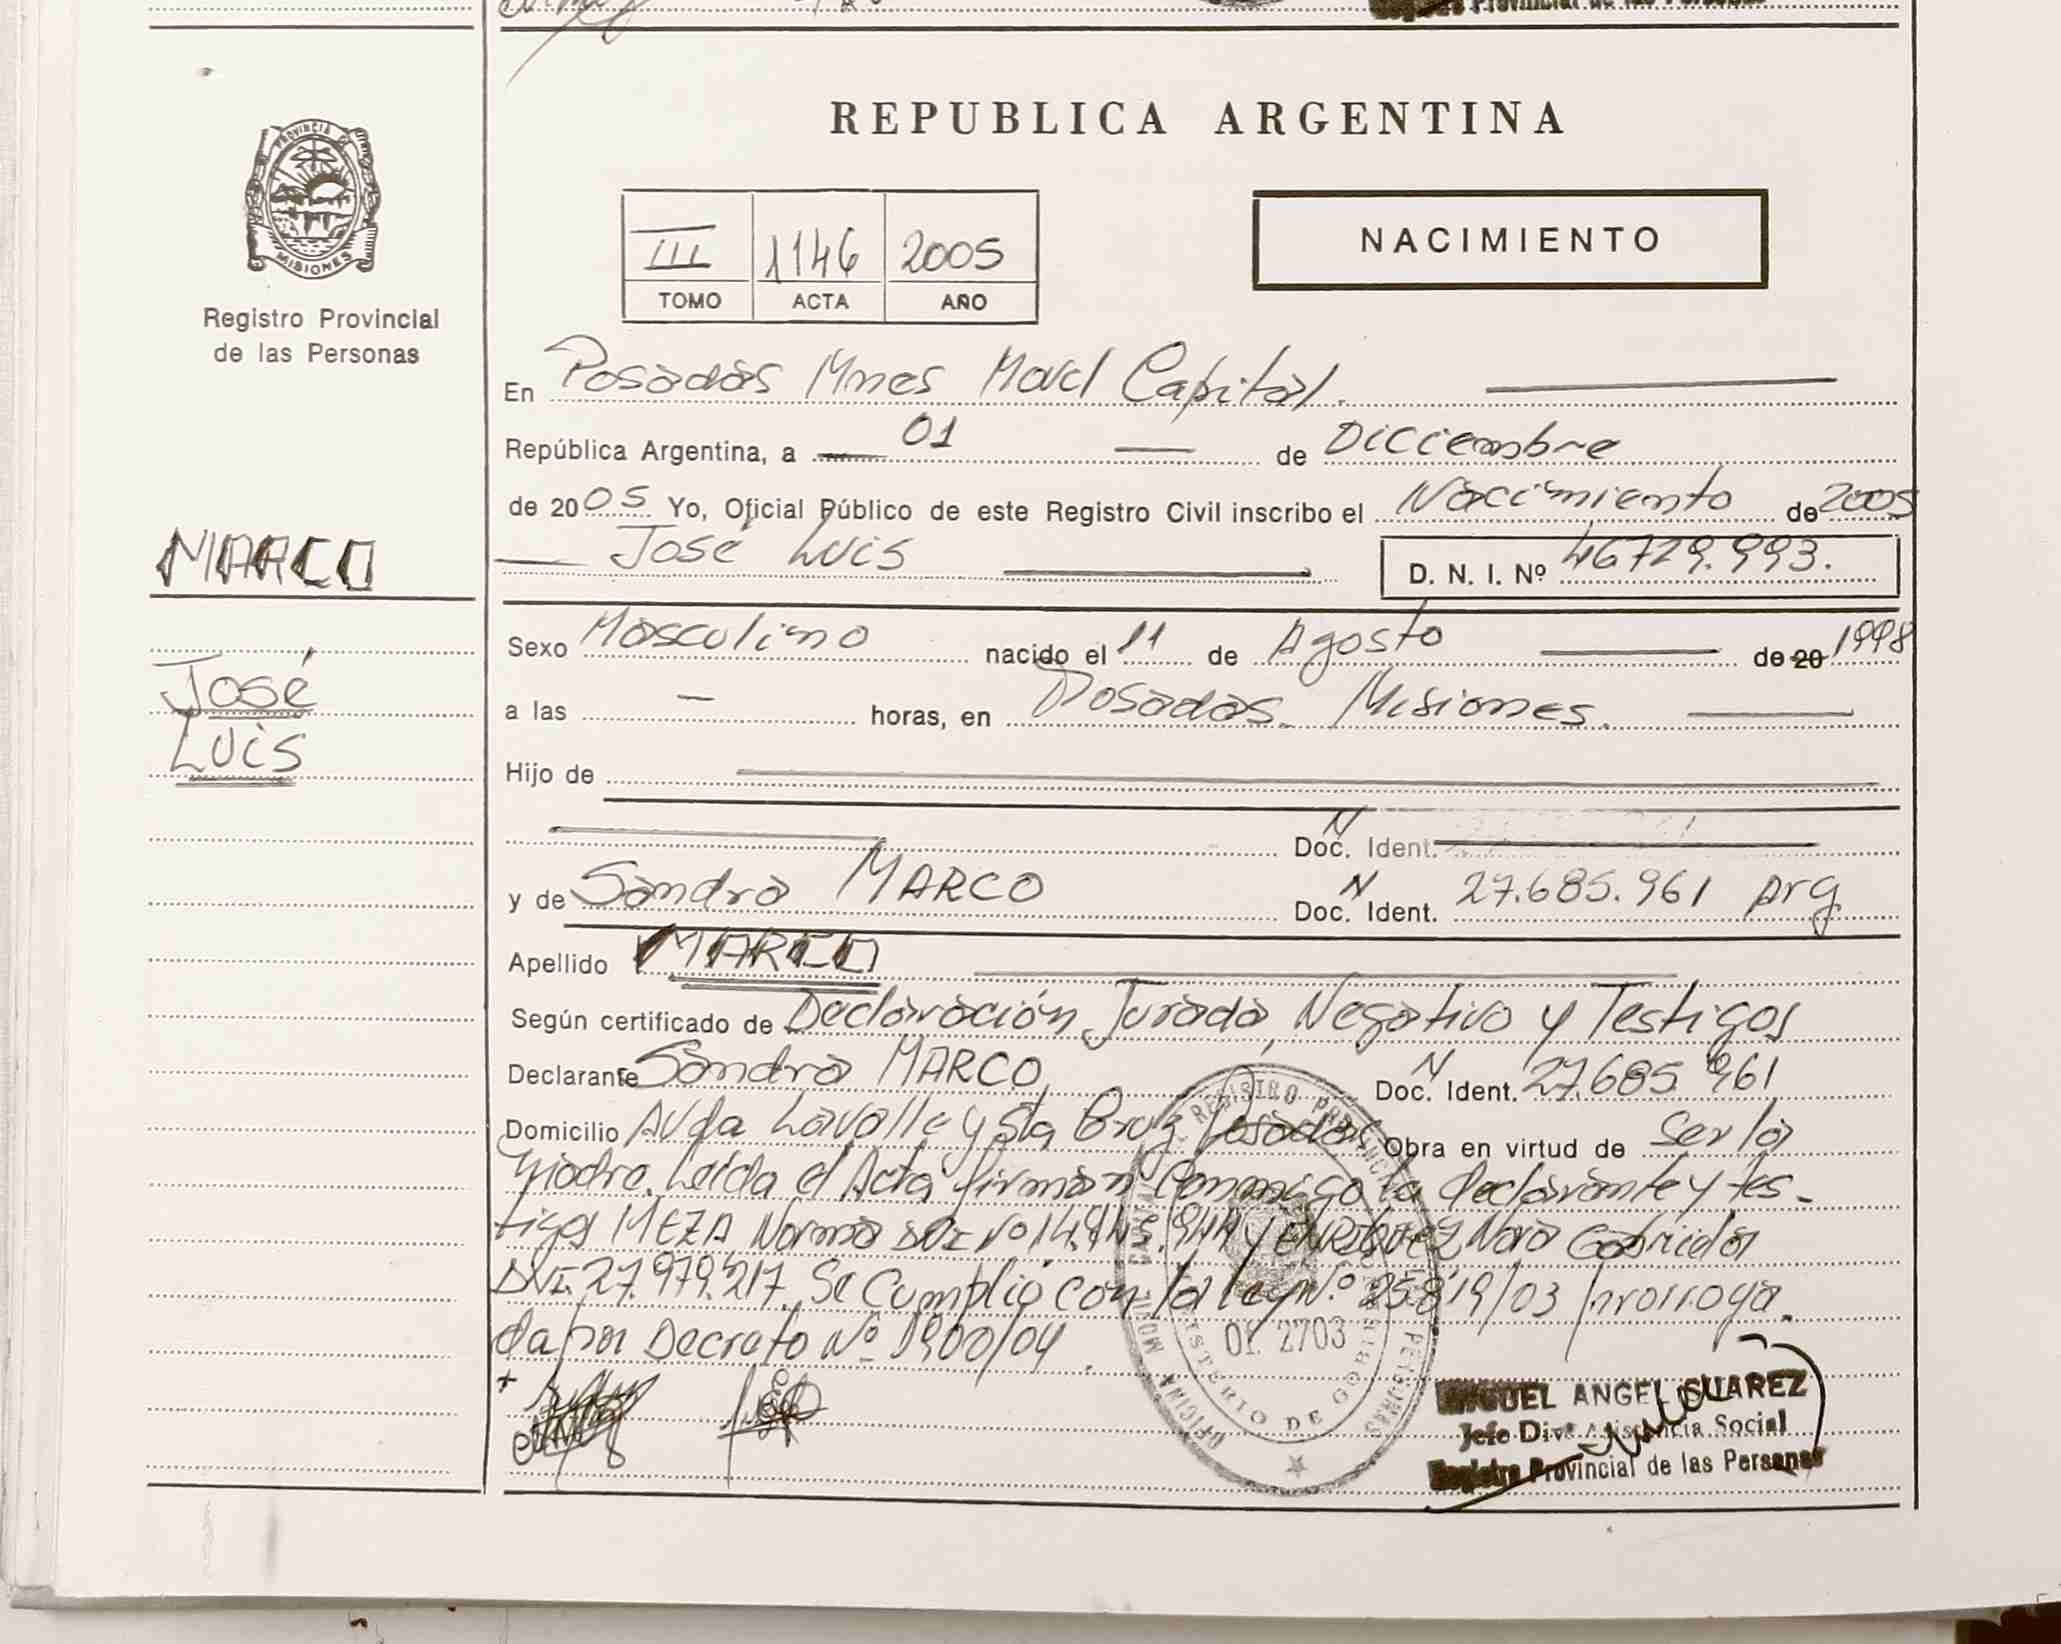 REPUBLICA ARGENTINA
PROVINCIA DE
MISIONES
Registro Provincial
de las Personas
III 1146 2005
TOMO ACTA AÑO
NACIMIENTO
En Posadas Mnes Capital.
República Argentina, a 01 de Diciembre
de 2005 Yo, Oficial Público de este Registro Civil inscribo el Nacimiento de 2005
José Luis D. N. I. Nº 46729.993.
MARCO
José
Luis
Sexo Masculino nacido el 11 de Agosto de 20 1998
a las — horas, en Posadas Misiones.
Hijo de
Doc. N Ident.
y de Sandra MARCO Doc. N Ident. 27.685.961 Arg
Apellido MARCO
Según certificado de Declaración Jurada, Negativo y Testigos
Declarante Sandra MARCO Doc. N Ident. 27.685.961
Domicilio Avda Lavalle y Sta Posadas Obra en virtud de Ser la
Madre. Leída el Acta firman Conmigo la declarante y tes-
tigos MEZA Norma DNI Nº y ENRIQUEZ
DNI. 27.979.217. Se Cumplió con la ley Nº 25819/03 prorroga-
da por Decreto Nº 1900/04.
REGISTRO PROVINCIAL PERSONAS
MINISTERIO DE GOBIERNO
OFICINA MOVIL CAPITAL
2703
MIGUEL ANGEL SUAREZ
Jefe Div. Asistencia Social
Registro Provincial de las Personas